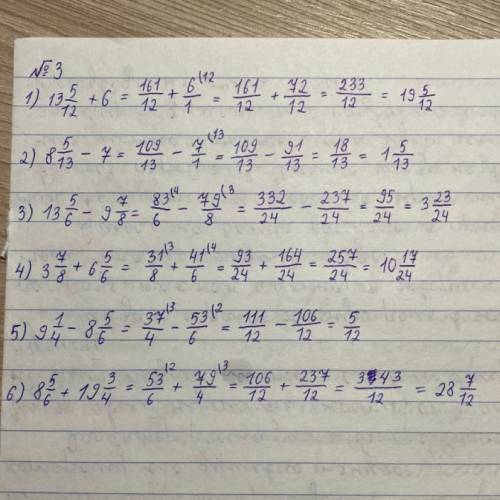 № 3
1) 13 5/12 + 6 = 161/12 + 6/1 (12 = 161/12 + 72/12 = 233/12 = 19 5/12
2) 8 5/13 - 7 = 109/13 - 7/1 (13 = 109/13 - 91/13 = 18/13 = 1 5/13
3) 13 5/6 - 9 7/8 = 83/6 (4 - 79/8 (3 = 332/24 - 237/24 = 95/24 = 3 23/24
4) 3 7/8 + 6 5/6 = 31/8 (3 + 41/6 (4 = 93/24 + 164/24 = 257/24 = 10 17/24
5) 9 1/4 - 8 5/6 = 37/4 (3 - 53/6 (2 = 111/12 - 106/12 = 5/12
6) 8 5/6 + 19 3/4 = 53/6 (2 + 79/4 (3 = 106/12 + 237/12 = 343/12 = 28 7/12